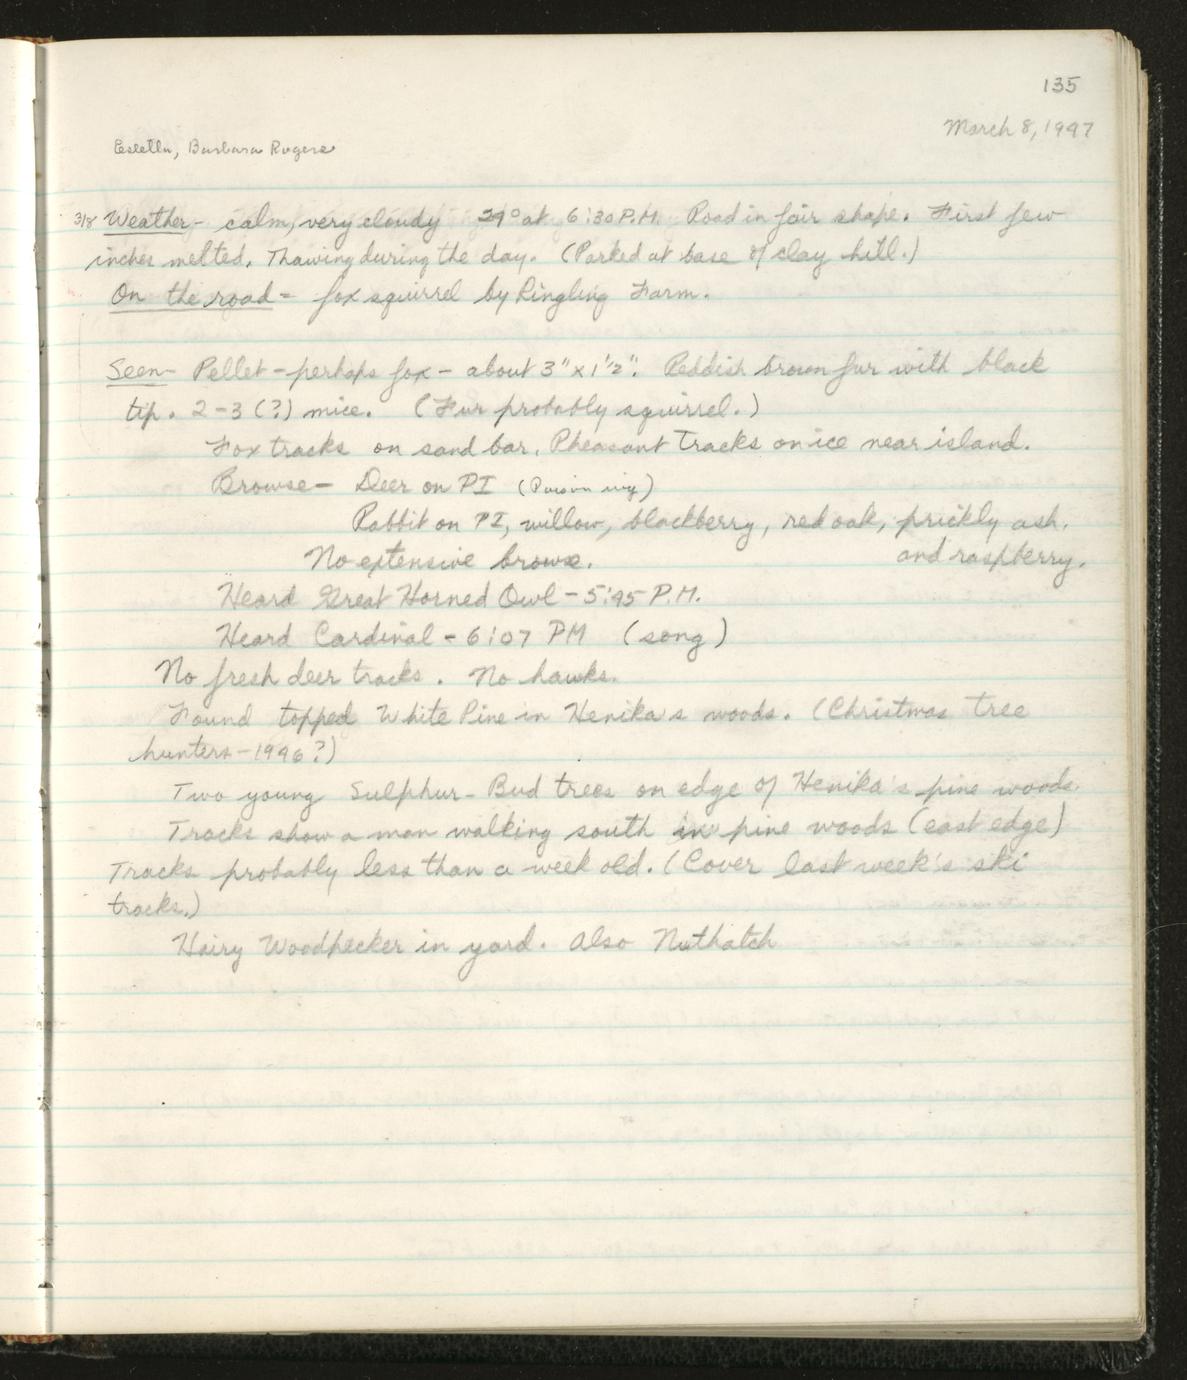 135
March 8, 1947
Estella, Barbara Rogers
3/8 Weather - calm, very cloudy 29° at 6:30 P.M. Road in fair shape. First few
inches melted. Thawing during the day. (Parked at base of clay hill.)
On the road - fox squirrel by Ringling Farm.
Seen - Pellet - perhaps fox - about 3" x 1 1/2". Reddish brown fur with black
tip. 2-3 (?) mice. (Fur probably squirrel.)
Fox tracks on sand bar. Pheasant tracks on ice near island.
Browse - Deer on PI (Poison ivy)
Rabbit on PI, willow, blackberry, red oak, prickly ash.
No extensive browse. and raspberry.
Heard Great Horned Owl - 5:45 P.M.
Heard Cardinal - 6:07 PM (song)
No fresh deer tracks. No hawks.
Found topped White Pine in Henika's woods. (Christmas tree
hunters - 1946?)
Two young Sulphur-Bud trees on edge of Henika's pine woods.
Tracks show a man walking south in pine woods (east edge)
Tracks probably less than a week old. (Cover last week's ski
tracks.)
Hairy Woodpecker in yard. Also Nuthatch